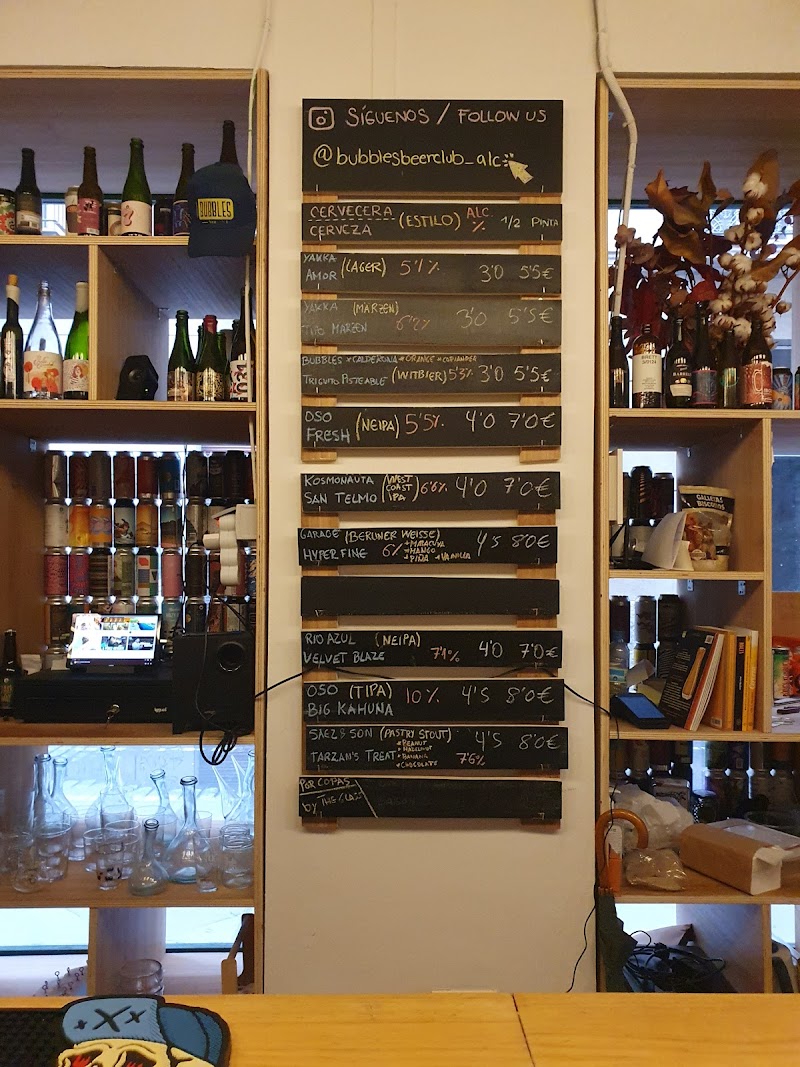 SÍGUENOS / FOLLOW US
@bubblesbeerclub_alc
CERVECERA (ESTILO) ALC. 1/2 PINTA
CERVEZA %
YAKKA (LAGER) 5'1% 3'0 5'5€
AMOR
YAKKA (MÄRZEN) 6'2% 3'0 5'5€
TIO MARZEN
BUBBLES * CALDERONA * ORANGE * CORIANDER
TRIGUITO PISTEABLE (WITBIER) 5'3% 3'0 5'5€
OSO (NEIPA) 5'5% 4'0 7'0€
FRESH
KOSMONAUTA (WEST COAST IPA) 6'6% 4'0 7'0€
SAN TELMO
GARAGE (BERLINER WEISSE) 4'5 8'0€
HYPER FINE 6% * MARACUYA
* MANGO
* PIÑA * VAINILLA
RIO AZUL (NEIPA) 4'0 7'0€
VELVET BLAZE 7'1%
OSO (TIPA) 10% 4'5 8'0€
BIG KAHUNA
SAEZ & SON (PASTRY STOUT) 4'5 8'0€
* PEANUT
* HAZELNUT
TARZAN'S TREAT * BANANA 7'6%
* CHOCOLATE
POR COPAS
BY THE GLASS
BUBBLES
GALLETAS
BISCUITS
1021